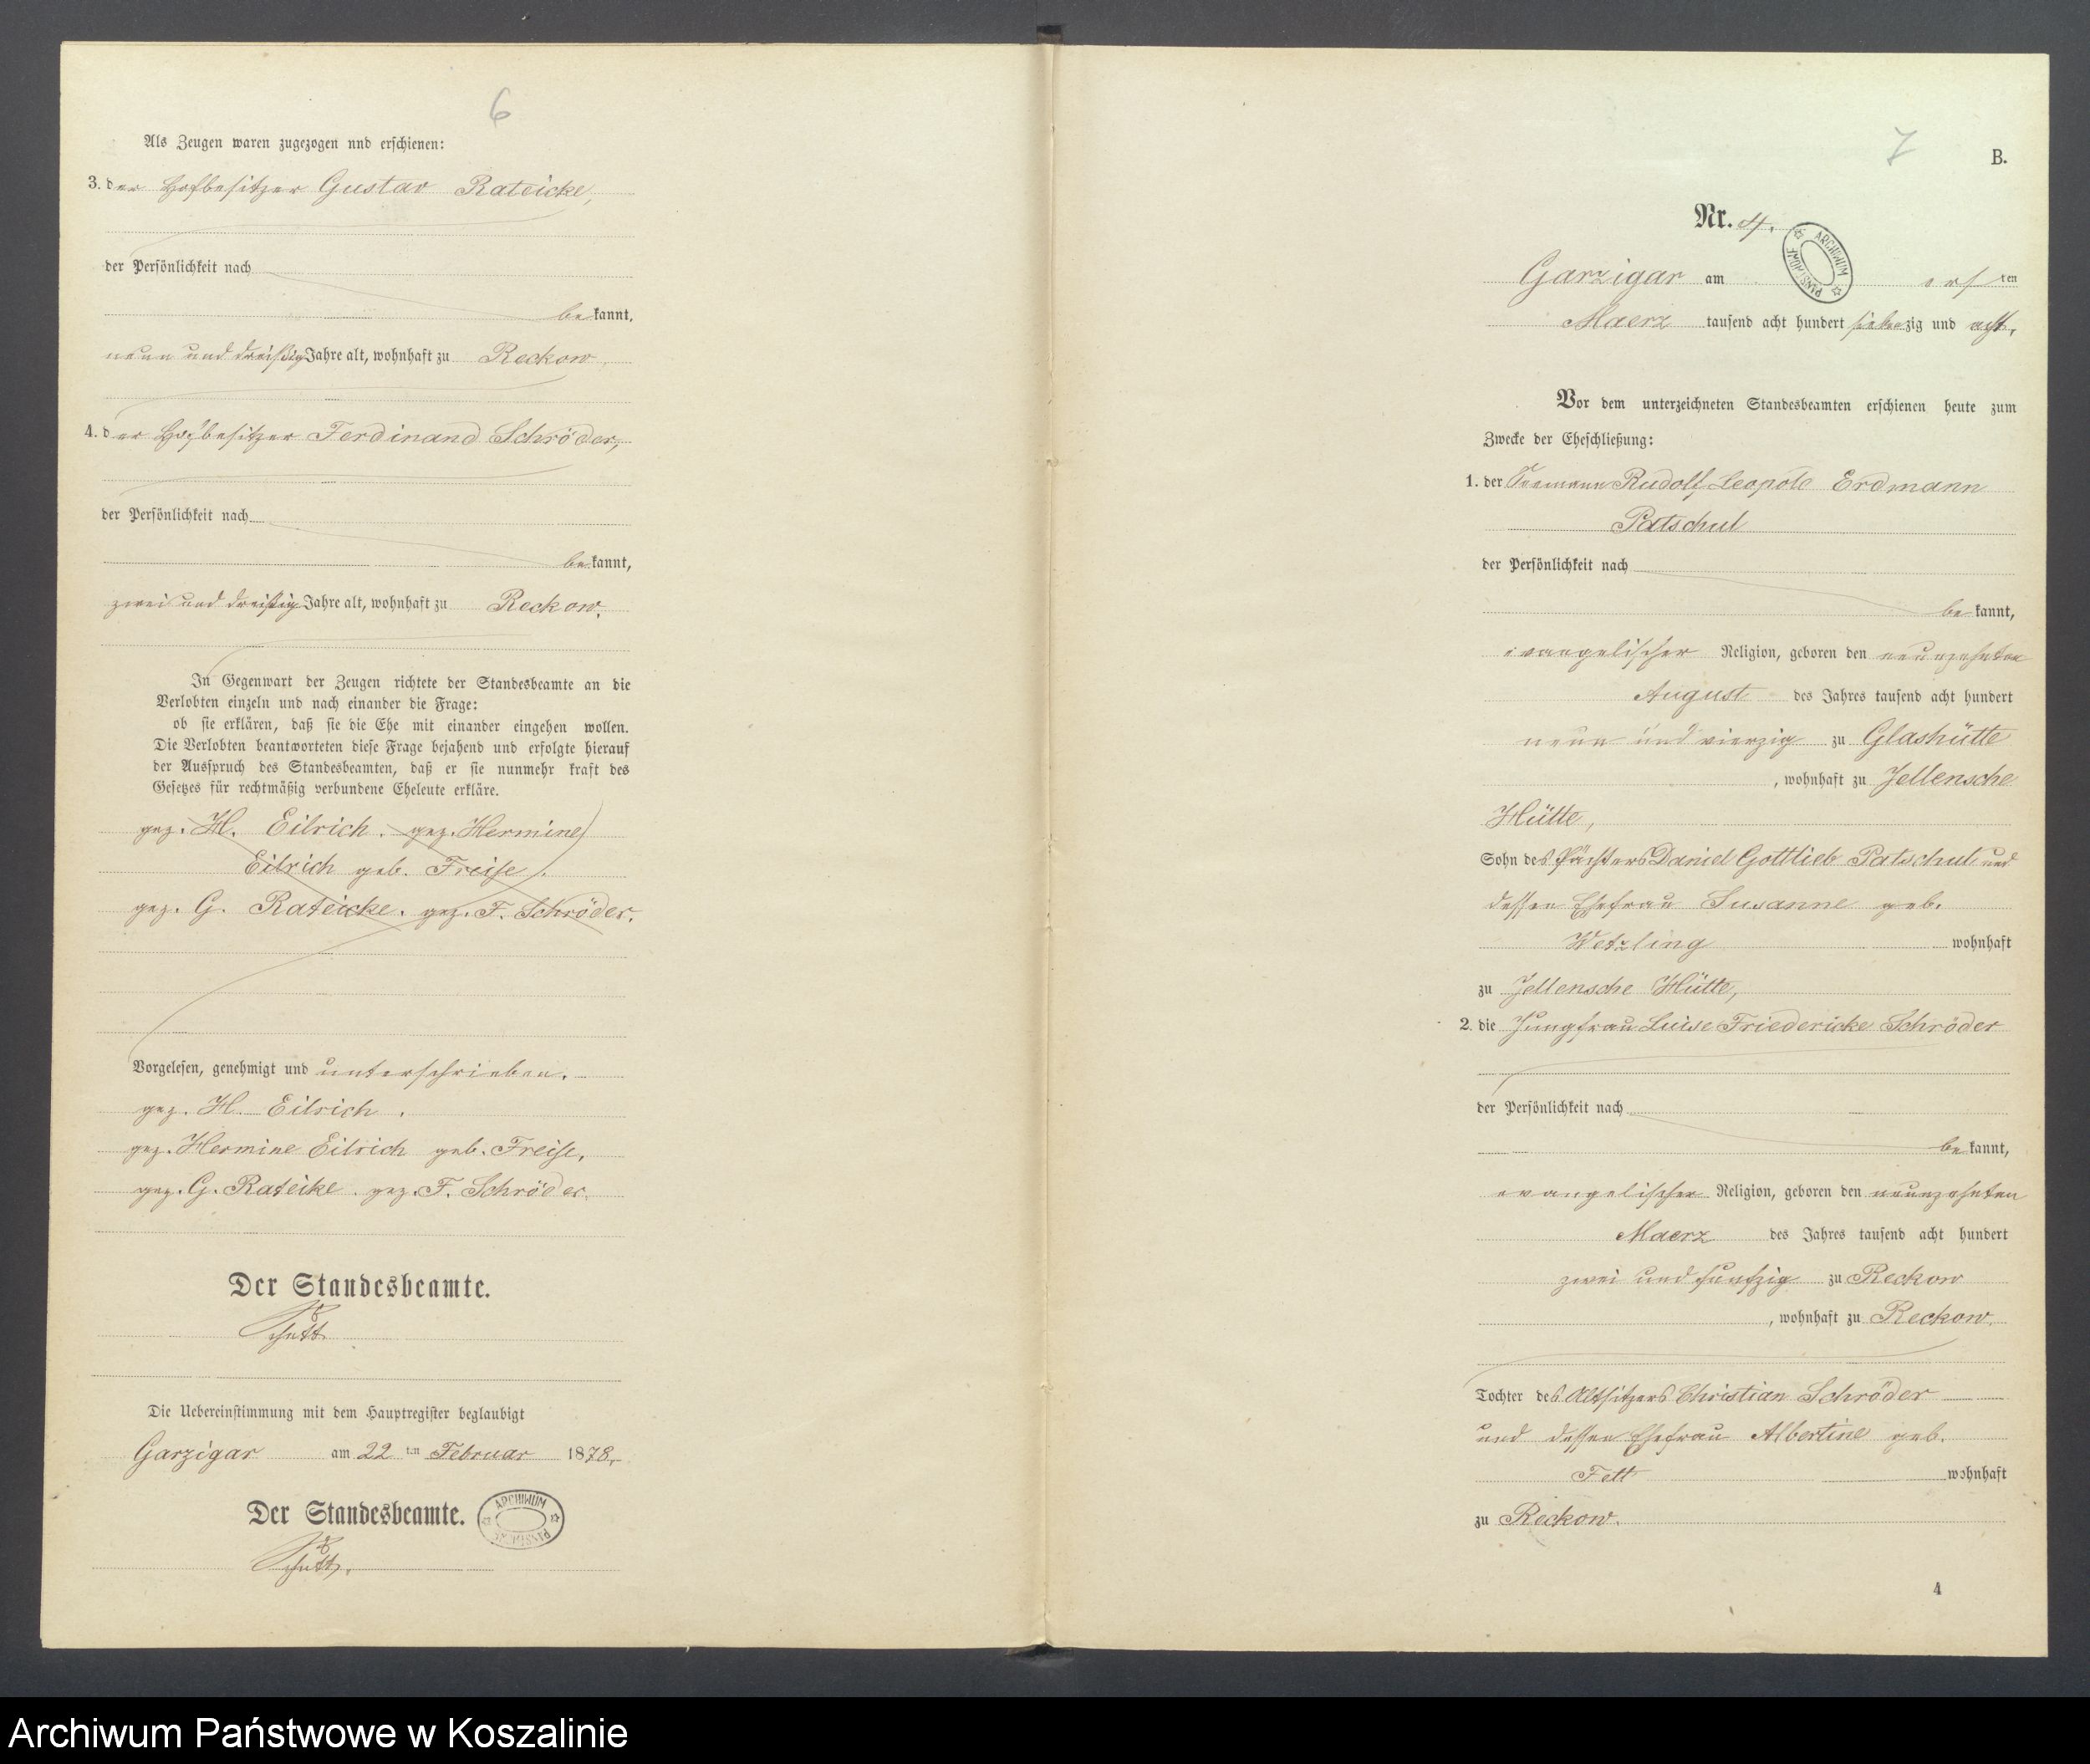 6
Als Zeugen waren zugezogen nnd erschienen:
3. der Hofbesitzer Gustav Rateicke,
der Persönlichkeit nach
bekannt,
neun und dreißig Jahre alt, wohnhaft zu Reckow
4. der Hofbesitzer Ferdinand Schröder,
der Persönlichkeit nach
bekannt,
zwei und dreißig Jahre alt, wohnhaft zu Reckow.
In Gegenwart der Zeugen richtete der Standesbeamte an die
Verlobten einzeln und nach einander die Frage:
ob sie erklären, daß sie die Ehe mit einander eingehen wollen.
Die Verlobten beantworteten diese Frage bejahend und erfolgte hierauf
der Ausspruch des Standesbeamten, daß er sie nunmehr kraft des
Gesetzes für rechtmäßig verbundene Eheleute erkläre.
gez. H. Eilrich. gez. Hermine
Eilrich geb. Freise.
gez. G. Rateicke. gez. F. Schröder.
Vorgelesen, genehmigt und unterschrieben.
gez. H. Eilrich.
gez. Hermine Eilrich geb. Freise.
gez. G. Rateike. gez. F. Schröder.
Der Standesbeamte.
Schütt
Die Uebereinstimmung mit dem Hauptregister beglaubigt
Garzigar am 22 ten Februar 1878.
Der Standesbeamte.
ARCHIWUM PAŃSTWOWE
Schütt.
7
B.
Nr. 4.
ARCHIWUM PAŃSTWOWE
Garzigar am ersten
Maerz tausend acht hundert siebenzig und acht,
Vor dem unterzeichneten Standesbeamten erschienen heute zum
Zwecke der Eheschließung:
1. der Rudolf Leopold Erdmann
Patschul
der Persönlichkeit nach
bekannt,
evangelischer Religion, geboren den neunzehnten
August des Jahres tausend acht hundert
neun und vierzig zu Glashütte
, wohnhaft zu Jellensche
Hütte,
Sohn des Pächters Daniel Gottlieb Patschul und
dessen Ehefrau Susanne geb.
Wetzling wohnhaft
zu Jellensche Hütte,
2. die Jungfrau Luise Friedericke Schröder
der Persönlichkeit nach
bekannt,
evangelischer Religion, geboren den neunzehnten
Maerz des Jahres tausend acht hundert
zwei und funfzig zu Reckow
, wohnhaft zu Reckow.
Tochter des Altsitzers Christian Schröder
und dessen Ehefrau Albertine geb.
Fett wohnhaft
zu Reckow.
4
Archiwum Państwowe w Koszalinie